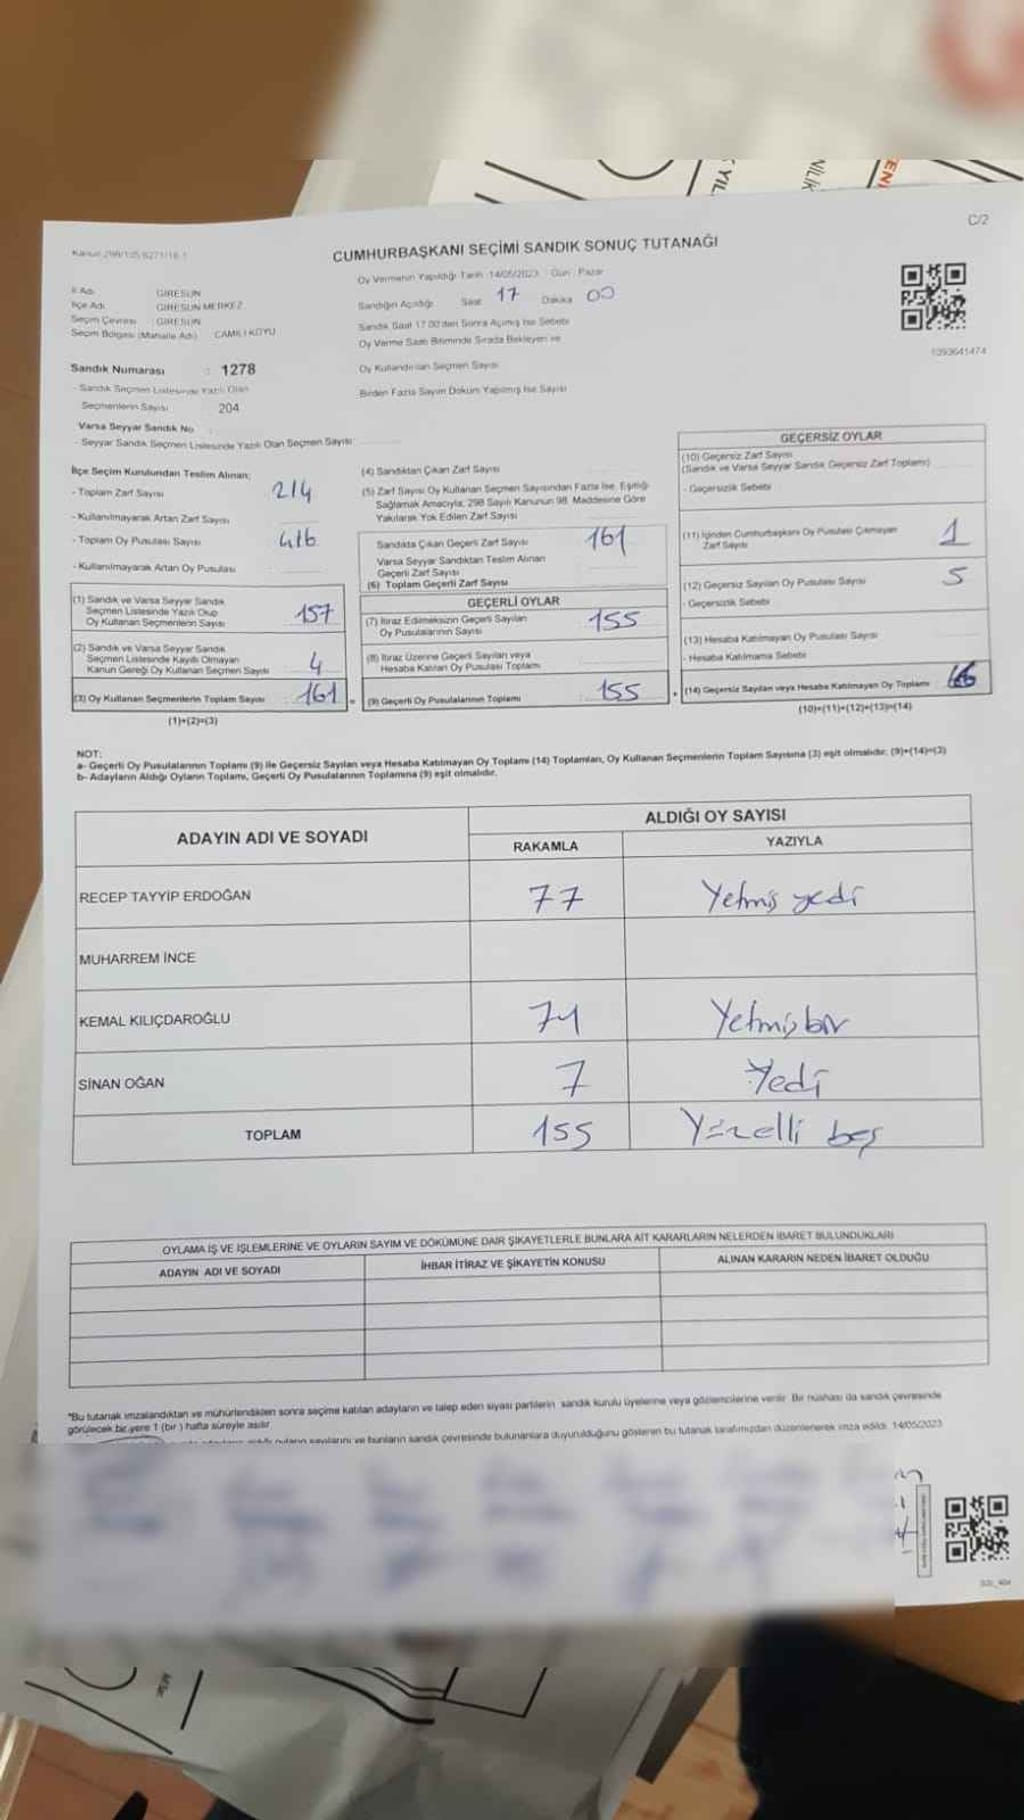 YIL
NİLİK
C/2
CUMHURBAŞKANI SEÇİMİ SANDIK SONUÇ TUTANAĞI
Oy Vermenin Yapıldığı Tarih :14/05/2023 Gün : Pazar
İl Adı : GİRESUN
İlçe Adı : GİRESUN MERKEZ
Seçim Çevresi : GİRESUN
Seçim Bölgesi (Mahalle Adı) : CAMİLİ KÖYÜ
Sandığın Açıldığı Saat 17 Dakika 00
Sandık Saat 17.00'den Sonra Açılmış İse Sebebi
Oy Verme Saati Bitiminde Sırada Bekleyen ve
Oy Kullandırılan Seçmen Sayısı
Birden Fazla Sayım Döküm Yapılmış İse Sayısı
1093641474
Sandık Numarası : 1278
- Sandık Seçmen Listesinde Yazılı Olan
Seçmenlerin Sayısı 204
Varsa Seyyar Sandık No :
- Seyyar Sandık Seçmen Listesinde Yazılı Olan Seçmen Sayısı:
İlçe Seçim Kurulundan Teslim Alınan;
- Toplam Zarf Sayısı 214
- Kullanılmayarak Artan Zarf Sayısı
- Toplam Oy Pusulası Sayısı 416
- Kullanılmayarak Artan Oy Pusulası
(1) Sandık ve Varsa Seyyar Sandık
Seçmen Listesinde Yazılı Olup
Oy Kullanan Seçmenlerin Sayısı 157
(2) Sandık ve Varsa Seyyar Sandık
Seçmen Listesinde Kayıtlı Olmayan
Kanun Gereği Oy Kullanan Seçmen Sayısı 4
(3) Oy Kullanan Seçmenlerin Toplam Sayısı 161 =
(1)+(2)=(3)
(4) Sandıktan Çıkan Zarf Sayısı
(5) Zarf Sayısı Oy Kullanan Seçmen Sayısından Fazla İse, Eşitliği
Sağlamak Amacıyla, 298 Sayılı Kanunun 98. Maddesine Göre
Yakılarak Yok Edilen Zarf Sayısı
Sandıkta Çıkan Geçerli Zarf Sayısı 161
Varsa Seyyar Sandıktan Teslim Alınan
Geçerli Zarf Sayısı
(6) Toplam Geçerli Zarf Sayısı
GEÇERLİ OYLAR
(7) İtiraz Edilmeksizin Geçerli Sayılan
Oy Pusulalarının Sayısı 155
(8) İtiraz Üzerine Geçerli Sayılan veya
Hesaba Katılan Oy Pusulası Toplamı
(9) Geçerli Oy Pusulalarının Toplamı 155 +
GEÇERSİZ OYLAR
(10) Geçersiz Zarf Sayısı
(Sandık ve Varsa Seyyar Sandık Geçersiz Zarf Toplamı)
- Geçersizlik Sebebi
(11) İçinden Cumhurbaşkanı Oy Pusulası Çıkmayan
Zarf Sayısı 1
(12) Geçersiz Sayılan Oy Pusulası Sayısı 5
- Geçersizlik Sebebi
(13) Hesaba Katılmayan Oy Pusulası Sayısı
- Hesaba Katılmama Sebebi
(14) Geçersiz Sayılan veya Hesaba Katılmayan Oy Toplamı
(10)+(11)+(12)+(13)=(14)
NOT:
a- Geçerli Oy Pusulalarının Toplamı (9) ile Geçersiz Sayılan veya Hesaba Katılmayan Oy Toplamı (14) Toplamları, Oy Kullanan Seçmenlerin Toplam Sayısına (3) eşit olmalıdır. (9)+(14)=(3)
b- Adayların Aldığı Oyların Toplamı, Geçerli Oy Pusulalarının Toplamına (9) eşit olmalıdır.
ADAYIN ADI VE SOYADI
ALDIĞI OY SAYISI
RAKAMLA YAZIYLA
RECEP TAYYİP ERDOĞAN 77 Yetmiş yedi
MUHARREM İNCE
KEMAL KILIÇDAROĞLU 71 Yetmiş bir
SİNAN OĞAN 7 Yedi
TOPLAM 155 Yüzelli beş
OYLAMA İŞ VE İŞLEMLERİNE VE OYLARIN SAYIM VE DÖKÜMÜNE DAİR ŞİKAYETLERLE BUNLARA AİT KARARLARIN NELERDEN İBARET BULUNDUKLARI
ADAYIN ADI VE SOYADI
İHBAR İTİRAZ VE ŞİKAYETİN KONUSU
ALINAN KARARIN NEDEN İBARET OLDUĞU
*Bu tutanak imzalandıktan ve mühürlendikten sonra seçime katılan adayların ve talep eden siyasi partilerin sandık kurulu üyelerine veya gözlemcilerine verilir. Bir nüshası da sandık çevresinde
görülecek bir yere 1 (bir) hafta süreyle asılır.
sayılarını ve bunların sandık çevresinde bulunanlara duyurulduğunu gösteren bu tutanak tarafımızdan düzenlenerek imza edildi. 14/05/2023